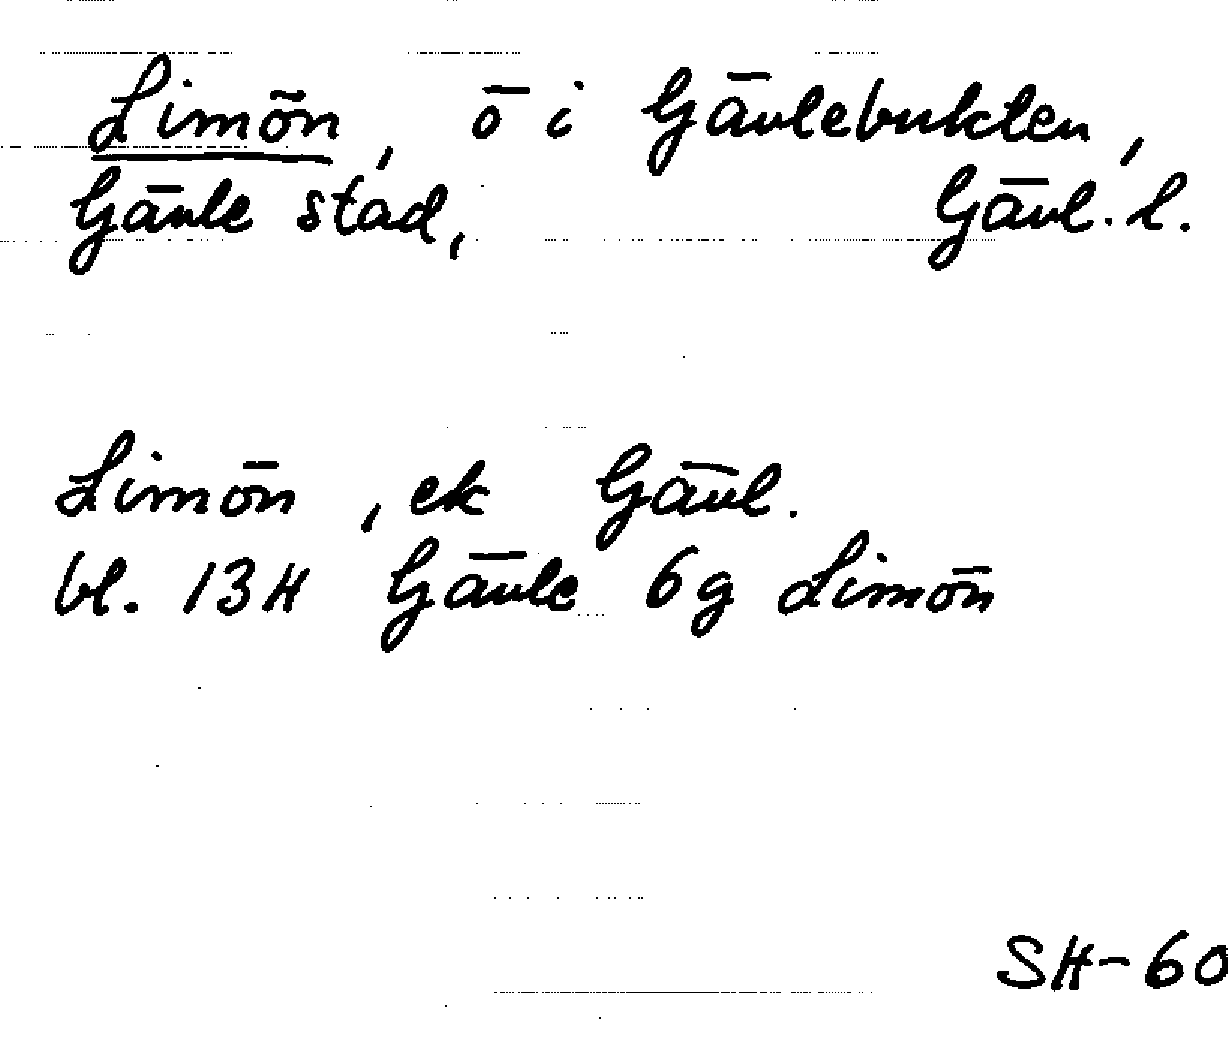 Limön, ö i Gävlebukten,
Gävle stad, Gävl. l.
Limön, ek Gävl.
bl. 13H Gävle 6g Limön
SH-60